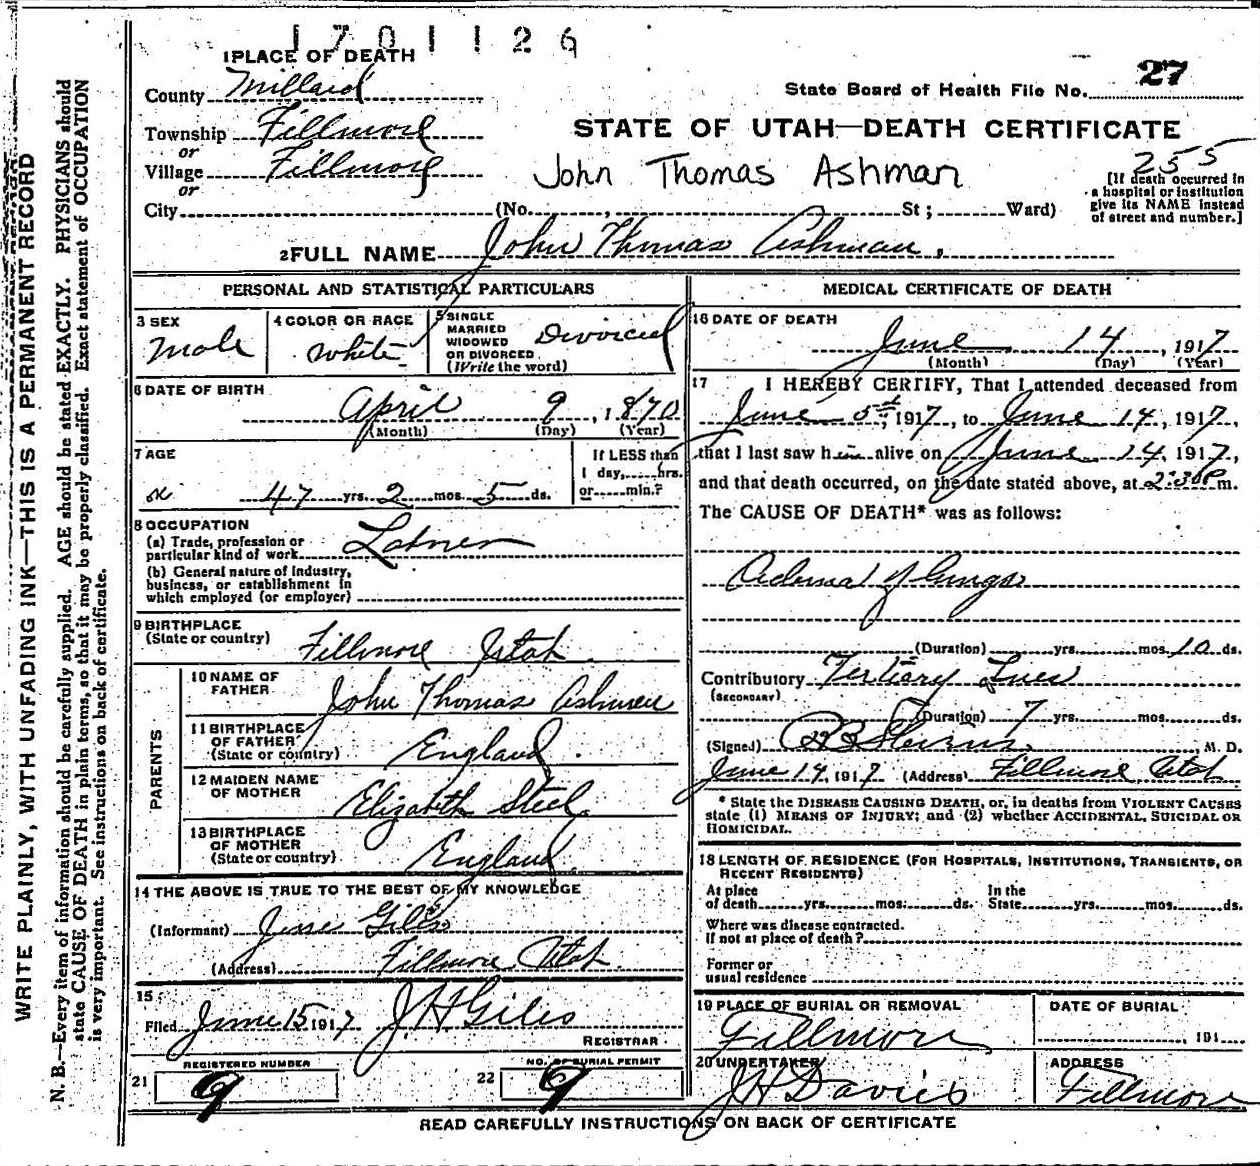 1701126
1 PLACE OF DEATH
County Millard
State Board of Health File No. 27
Township Fillmore
or
STATE OF UTAH—DEATH CERTIFICATE
Village Fillmore
or
John Thomas Ashman
255
[If death occurred in a hospital or institution give its NAME instead of street and number.]
City (No. , St; Ward)
2 FULL NAME John Thomas Ashman,
PERSONAL AND STATISTICAL PARTICULARS
3 SEX
Male
4 COLOR OR RACE
White
5 SINGLE
MARRIED
WIDOWED
OR DIVORCED
(Write the word)
Divorced
6 DATE OF BIRTH
April 9, 1870
(Month) (Day) (Year)
7 AGE
47 yrs. 2 mos. 5 ds.
If LESS than
1 day, hrs.
or min.?
8 OCCUPATION
(a) Trade, profession or
particular kind of work Laborer
(b) General nature of industry,
business, or establishment in
which employed (or employer)
9 BIRTHPLACE
(State or country) Fillmore Utah
PARENTS
10 NAME OF
FATHER John Thomas Ashman
11 BIRTHPLACE
OF FATHER
(State or country) England.
12 MAIDEN NAME
OF MOTHER Elizabeth Steel
13 BIRTHPLACE
OF MOTHER
(State or country) England
14 THE ABOVE IS TRUE TO THE BEST OF MY KNOWLEDGE
(Informant) Jesse Giles
(Address) Fillmore Utah
15
Filed June 15 1917 J H Giles
REGISTRAR
REGISTERED NUMBER
21 9
NO. OF BURIAL PERMIT
22 9
MEDICAL CERTIFICATE OF DEATH
16 DATE OF DEATH
June 14, 1917
(Month) (Day) (Year)
17 I HEREBY CERTIFY, That I attended deceased from
June 5, 1917, to June 14, 1917,
that I last saw him alive on June 14, 1917,
and that death occurred, on the date stated above, at 2:30 P m.
The CAUSE OF DEATH* was as follows:
Adema of Lungs
(Duration) yrs. mos. 10 ds.
Contributory Tertiary Lues
(SECONDARY)
(Duration) 7 yrs. mos. ds.
(Signed) , M. D.
June 14, 1917 (Address) Fillmore Utah
* State the DISEASE CAUSING DEATH, or, in deaths from VIOLENT CAUSES
state (1) MEANS OF INJURY; and (2) whether ACCIDENTAL, SUICIDAL OR
HOMICIDAL.
18 LENGTH OF RESIDENCE (FOR HOSPITALS, INSTITUTIONS, TRANSIENTS, OR
RECENT RESIDENTS)
At place In the
of death yrs. mos. ds. State yrs. mos. ds.
Where was disease contracted.
If not at place of death?
Former or
usual residence
19 PLACE OF BURIAL OR REMOVAL
Fillmore
DATE OF BURIAL
, 191
20 UNDERTAKER
J H Davies
ADDRESS
Fillmore
READ CAREFULLY INSTRUCTIONS ON BACK OF CERTIFICATE
WRITE PLAINLY, WITH UNFADING INK—THIS IS A PERMANENT RECORD
N. B.—Every item of information should be carefully supplied. AGE should be stated EXACTLY. PHYSICIANS should
state CAUSE OF DEATH in plain terms, so that it may be properly classified. Exact statement of OCCUPATION
is very important. See instructions on back of certificate.